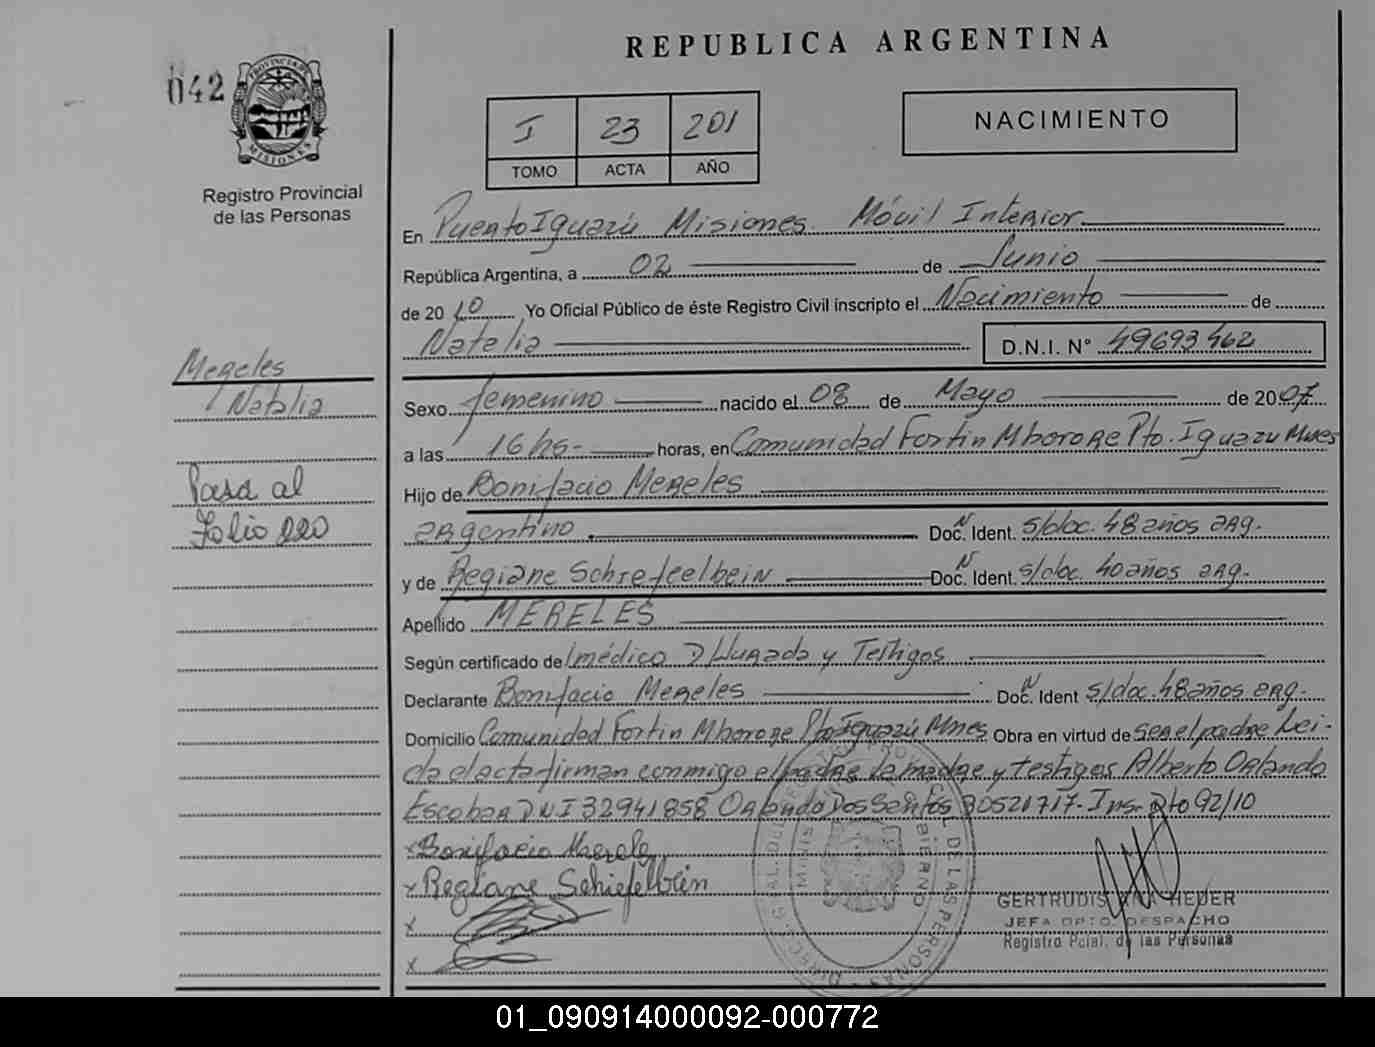 REPUBLICA ARGENTINA
042
PROVINCIA DE
MISIONES
Registro Provincial
de las Personas
I 23 201
TOMO ACTA AÑO
NACIMIENTO
En Puerto Iguazú Misiones. Móvil Interior
República Argentina, a 02 de Junio
de 2010 Yo Oficial Público de éste Registro Civil inscripto el Nacimiento de
Natalia D.N.I. N° 49693462
Mereles
Natalia
Pasa al
Folio 220
Sexo femenino nacido el 08 de Mayo de 2007
a las 16 hs- horas, en Comunidad Fortin Mborore Pto. Iguazu Mnes
Hijo de Bonifacio Mereles
argentino Doc. Ident. s/doc. 48 años arg.
y de Regiane Schiefelbein Doc. Ident. s/doc. 40 años arg.
Apellido MERELES
Según certificado de médico DJurada y Testigos
Declarante Bonifacio Mereles Doc. Ident s/doc. 48 años arg.
Domicilio Comunidad Fortin Mborore Pto Iguazú Mnes Obra en virtud de ser el padre Lei-
da el acta firman conmigo el padre la madre y testigos Alberto Orlando
Escobar DNI 32941858 Orlando Dos Santos 30521717- Insc Dto 92/10
x Bonifacio Merele
x Regiane Schiefelbein
x
x
GERTRUDIS ANA HEDER
JEFA DPTO. DESPACHO
Registro Pcial. de las Personas
01_090914000092-000772